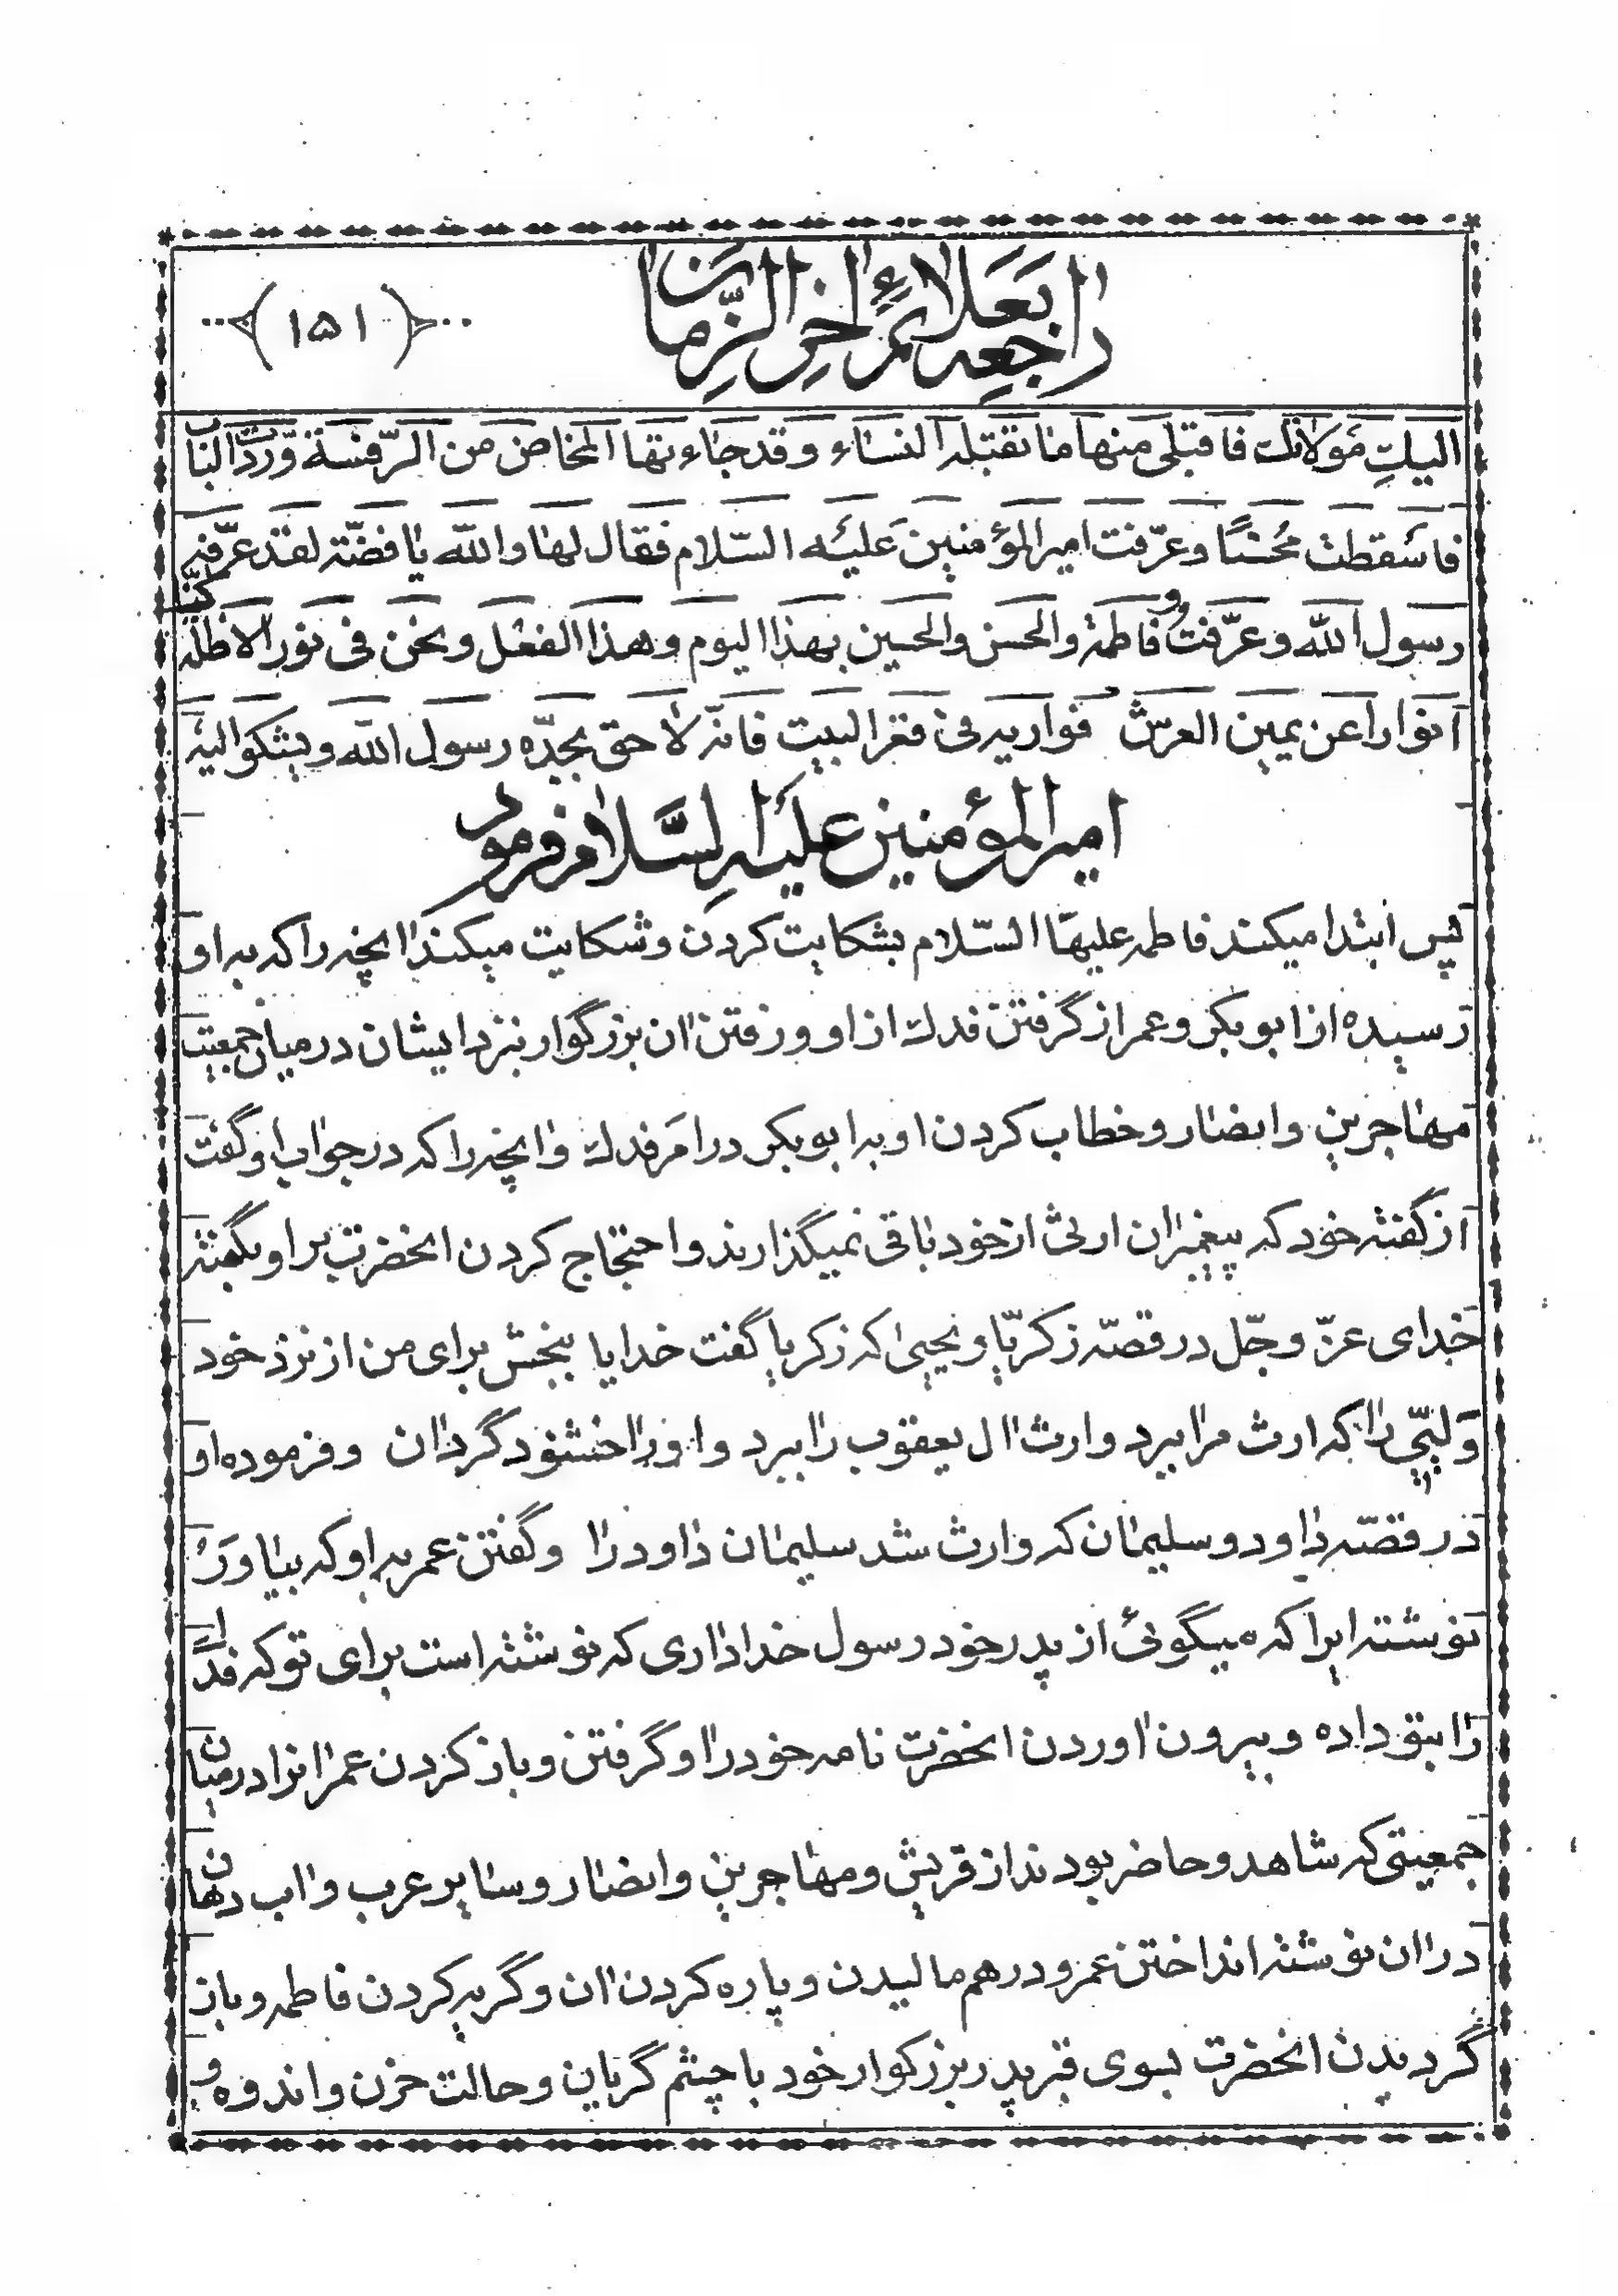 راجعه بعلائم اخر الزمان
(۱۵۱)
الیكِ مَولاتك فاقبلی منها ما تقبله النساء وقد جاءتها المخاض من الرّفسة ورَدّ الباب
فاسَقطت مُحسنًا وعرّفت امیر المؤمنین عَلیَه السّلام فقال لها والله یا فضّة لقد عرّفه
رسول الله وعرّفت و فاطمة والحسن والحسین بهذا الیوم وهذا الفعل ونحن فی نور الاظلّه كنّا
انوارا عن یمین العرش فواریه فی قعر البیت فانّه لاحق بجدّه رسول الله ویشكو الیه
امیر المؤمنین علیَه السَّلام فرمود
پس ابتدا میكند فاطمه علیهَا السّلام بشكایت كردن و شكایت میكند انچه را كه به او
رسیده از ابوبكر و عمر از گرفتن فدك از او و رفتن ان بزرگوار بنزد ایشان در میان جمعیت
مهاجرین و انصار و خطاب كردن او به ابوبكر در امر فدك و انچه را كه در جواب او گفت
از گفته خود كه پیغمبران ارثی از خود باقی نمیگذارند و احتجاج كردن انحضرت بر او بگفته
خدای عزّ و جّل در قصّه زكریّا و یحیی كه زكریا گفت خدایا ببخش برای من از نزد خود
وَلیّی را كه ارث مرا ببرد و ارث ال یعقوب را ببرد و او را خشنود گردان و فرموده او
در قصّه داود و سلیمان كه وارث شد سلیمان داود را و گفتن عمر به او كه بیاور
نوشته ایرا كه میگوئی از پدر خود رسول خدا داری كه نوشته است برای تو كه فدك
را بتو داده و بیرون اوردن انحضرت نامه خود را و گرفتن و باز كردن عمر انرا در میان
جمعیتی كه شاهد و حاضر بودند از قریش و مهاجرین و انصار و سایر عرب و اب دهان
در ان نوشته انداختن عمر و در هم مالیدن و پاره كردن ان و گریه كردن فاطمه و باز
گردیدن انحضرت بسوی قبر پدر بزركوار خود با چشم گریان و حالت حزن و اندوه و